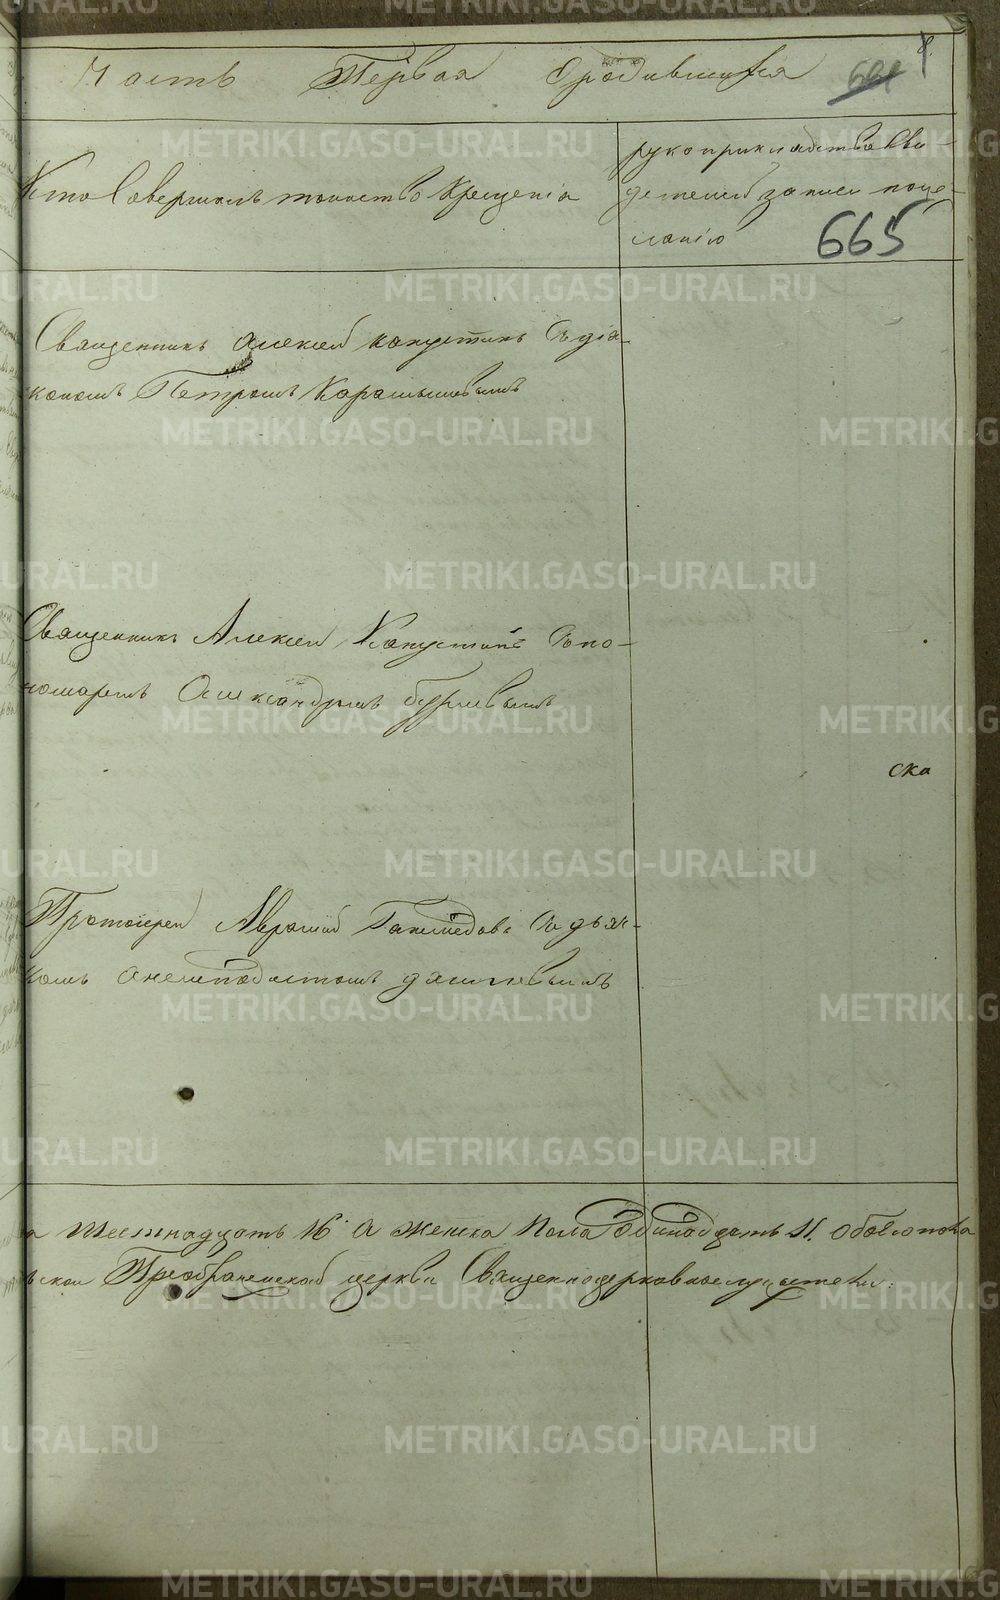 Часть Первая О родившихся
665
Кто Совершалъ таинство Крещенія
рукоприкладство Сви-
детелей записи поже-
ланію
Священникъ Алексей Капустинъ Съ діа-
кономъ Петромъ Карамышевымъ
Священникъ Алексей Капустинъ Съ по-
номаремъ Александромъ
ска
Протоіерей Аврамій Съ дьяч-
комъ Анемподистомъ
а Шестнадцать 16 А женска Пола Одинадцать 11. Обоего пола
Преображенской церкви Священноцерковнослужители:
METRIKI.GASO-URAL.RU